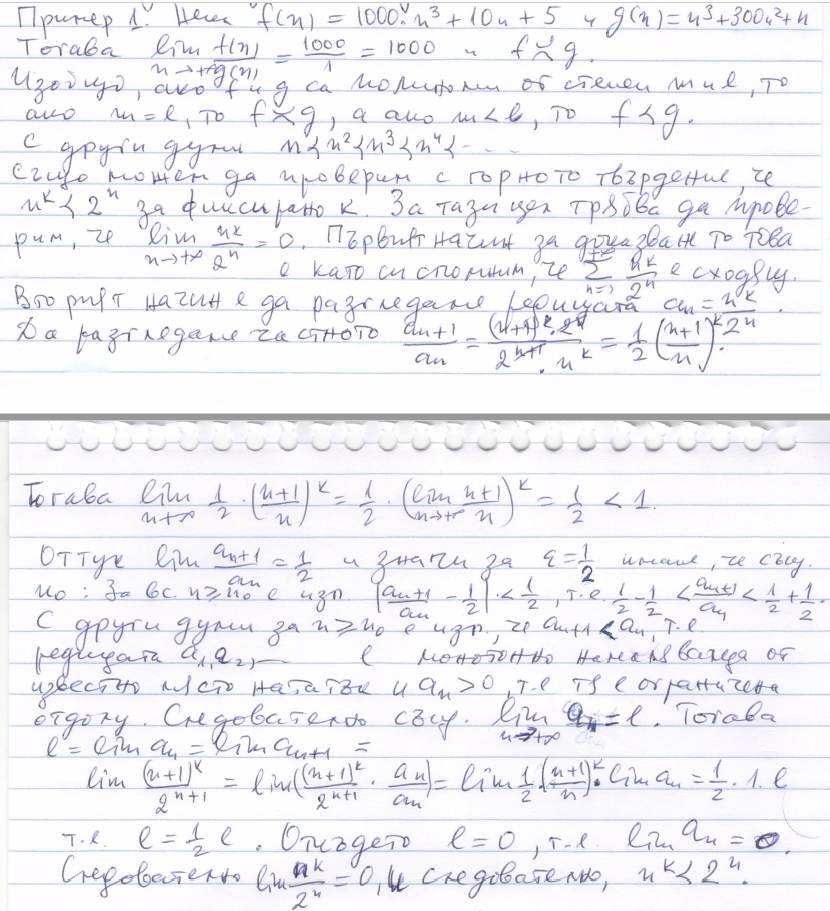 Пример 1: Нека f(n) = 1000.n³+10n+5 и g(n)=n³+300n²+n
Тогава lim_{n→+∞} f(n)/g(n) = 1000/1 = 1000 и f≍g.
Изобщо, ако f и g са полиноми от степен m и l, то
ако m=l, то f≍g, а ако m<l, то f≺g.
С други думи n≺n²≺n³≺n⁴≺....
Също можем да проверим с горното твърдение, че
n^k≺2^n за фиксирано k. За тази цел трябва да прове-
рим, че lim_{n→+∞} n^k/2^n = 0. Първият начин за доказване то това
е като си спомним, че ∑_{n=1}^{+∞} n^k/2^n е сходящ.
Вторият начин е да разгледаме редицата a_n = n^k/2^n.
Да разгледаме частното a_{n+1}/a_n = (n+1)^k.2^n/2^{n+1}.n^k = 1/2 ((n+1)/n)^k.
Тогава lim_{n→+∞} 1/2.((n+1)/n)^k = 1/2.(lim_{n→+∞} (n+1)/n)^k = 1/2 < 1.
Оттук lim a_{n+1}/a_n = 1/2 и значи за ε=1/2 имаме, че същ.
n₀: За вс. n≥n₀ е изп |a_{n+1}/a_n - 1/2| < 1/2, т.е. 1/2-1/2 < a_{n+1}/a_n < 1/2+1/2.
С други думи за n≥n₀ е изп., че a_{n+1}<a_n, т.е.
редицата a₁,a₂,... е монотонно намаляваща от
известно място нататък и a_n>0, т.е тя е ограничена
отдолу. Следователно същ. lim_{n→+∞} a_n=l. Тогава
l = lim a_n = lim a_{n+1} =
lim (n+1)^k/2^{n+1} = lim((n+1)^k/2^{n+1} . a_n/a_n) = lim 1/2.((n+1)/n)^k . lim a_n = 1/2.1.l
т.е. l=1/2 l. Откъдето l=0, т.е. lim a_n = 0.
Следователно lim n^k/2^n = 0, и следователно, n^k≺2^n.